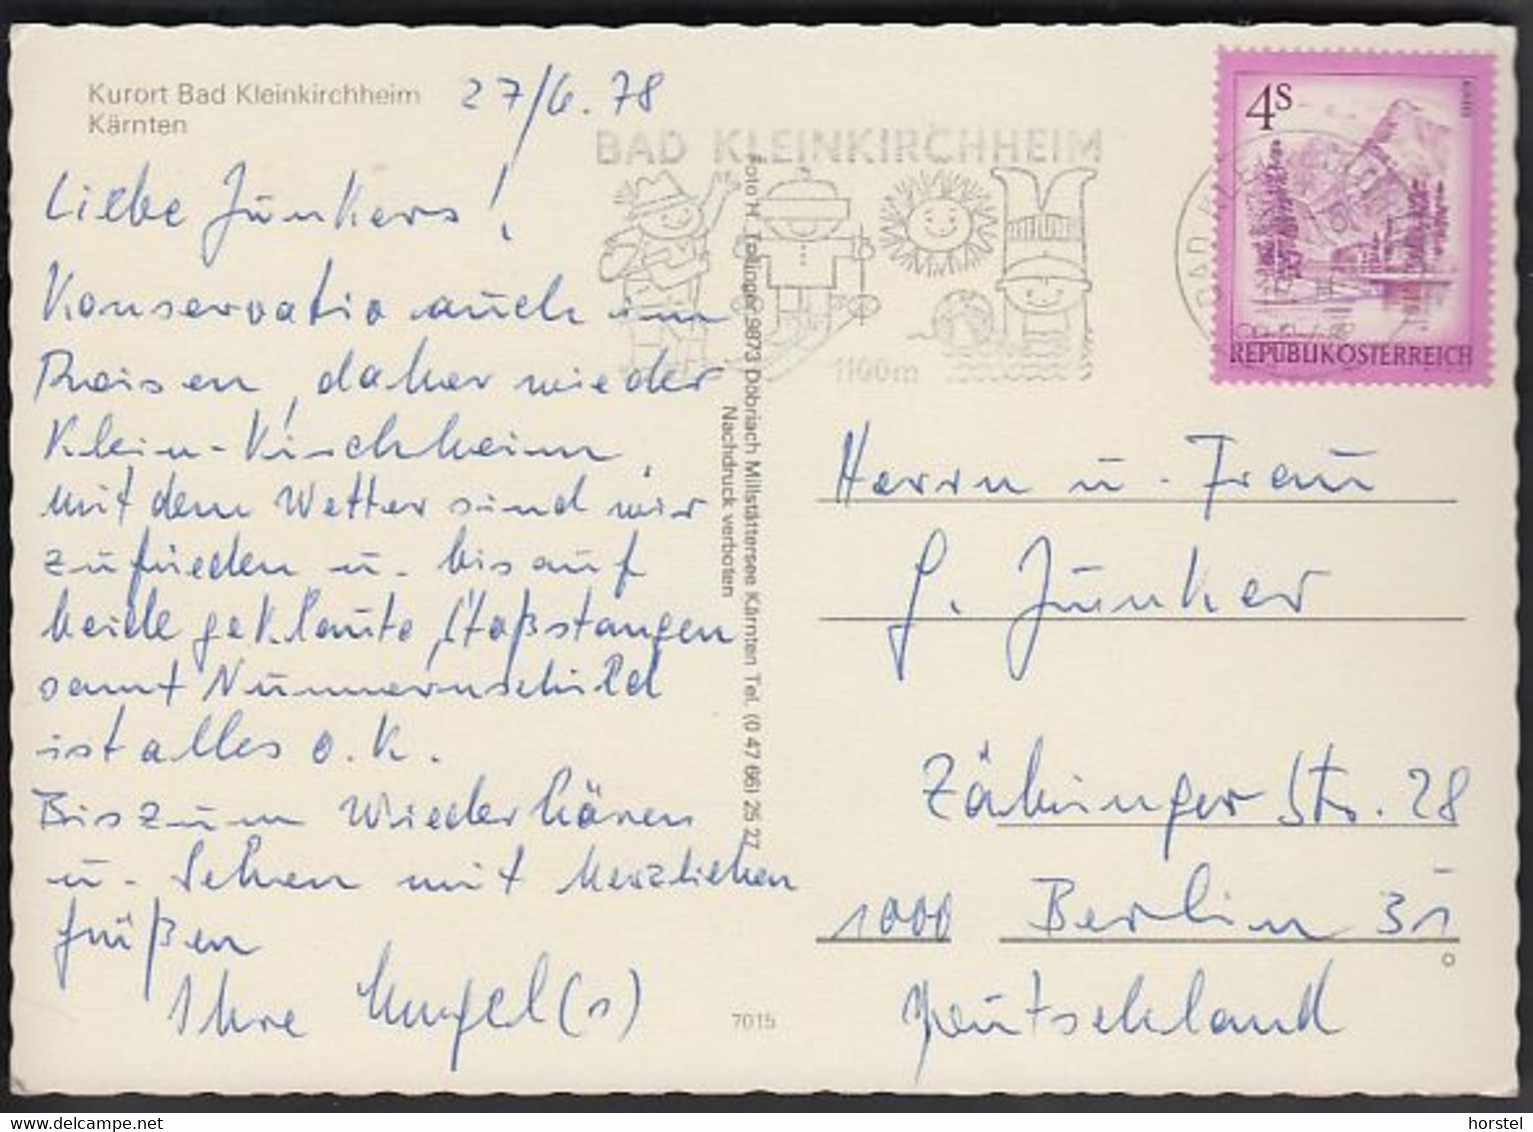 Kurort Bad Kleinkirchheim
Kärnten
27/6.78
Liebe Junkers!
Konservativ auch im
Reisen, daher wieder
Klein-Kirchheim,
mit dem Wetter sind wir
zufrieden u. bis auf
beide geklaute Stoßstangen
samt Nummernschild
ist alles o.k.
Bis zum Wiederhören
u. Sehen mit herzlichen
Grüßen
Ihre
BAD KLEINKIRCHHEIM
1100m
4S
REPUBLIK ÖSTERREICH
Foto H. 9873 Döbriach Millstättersee Kärnten Tel. (0 47 66) 25 27
Nachdruck verboten
7015
Herrn u. Frau
G. Junker
Zähringer Str. 28
1000 Berlin 31
Deutschland
delcampe.net
horstel